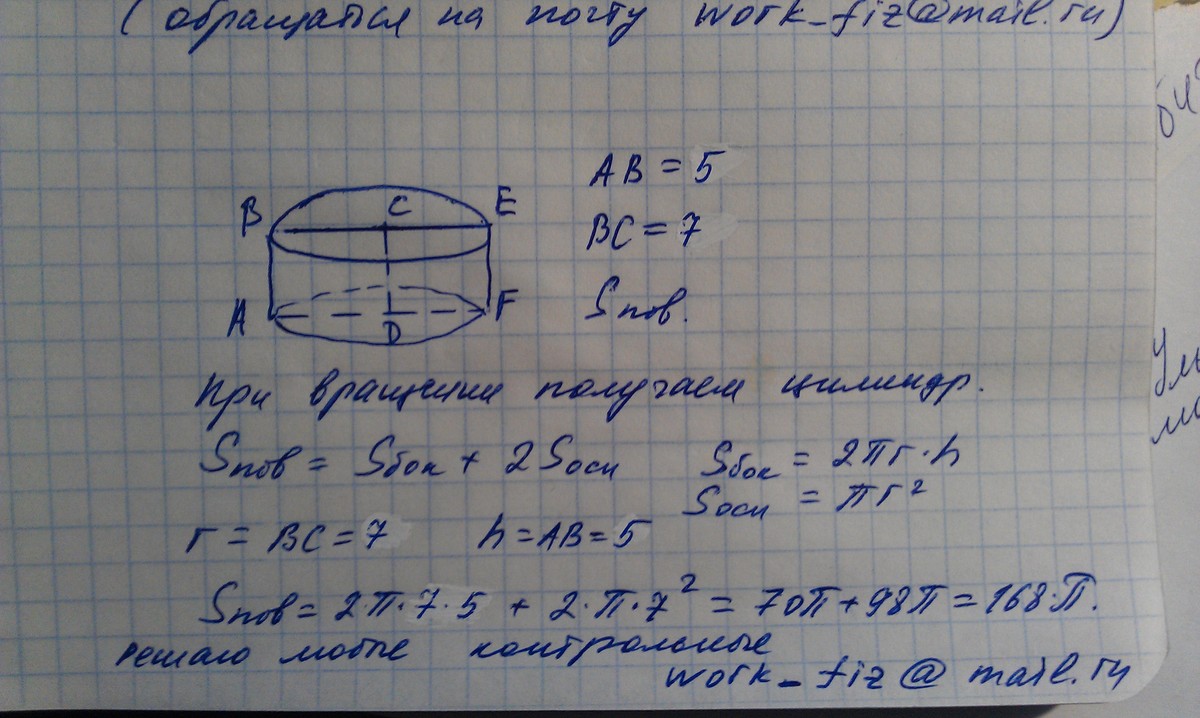 (обращаться на почту work_fiz@mail.ru)
AB = 5
B C E
BC = 7
A D F
Sпов.
При вращении получаем цилиндр.
Sпов = Sбок + 2Sосн Sбок = 2πr·h
Sосн = πr²
r = BC = 7 h = AB = 5
Sпов = 2·π·7·5 + 2·π·7² = 70π + 98π = 168·π.
решаю любые контрольные
work_fiz@mail.ru